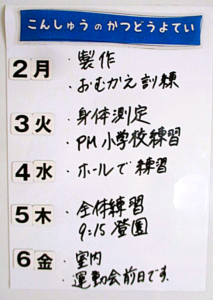 こんしゅうのかつどうよてい
2月 ・製作
・おむかえ訓練
3火 ・身体測定
・PM小学校練習
4水 ・ホールで練習
5木 ・全体練習
・9:15登園
6金 ・室内
・運動会前日です。